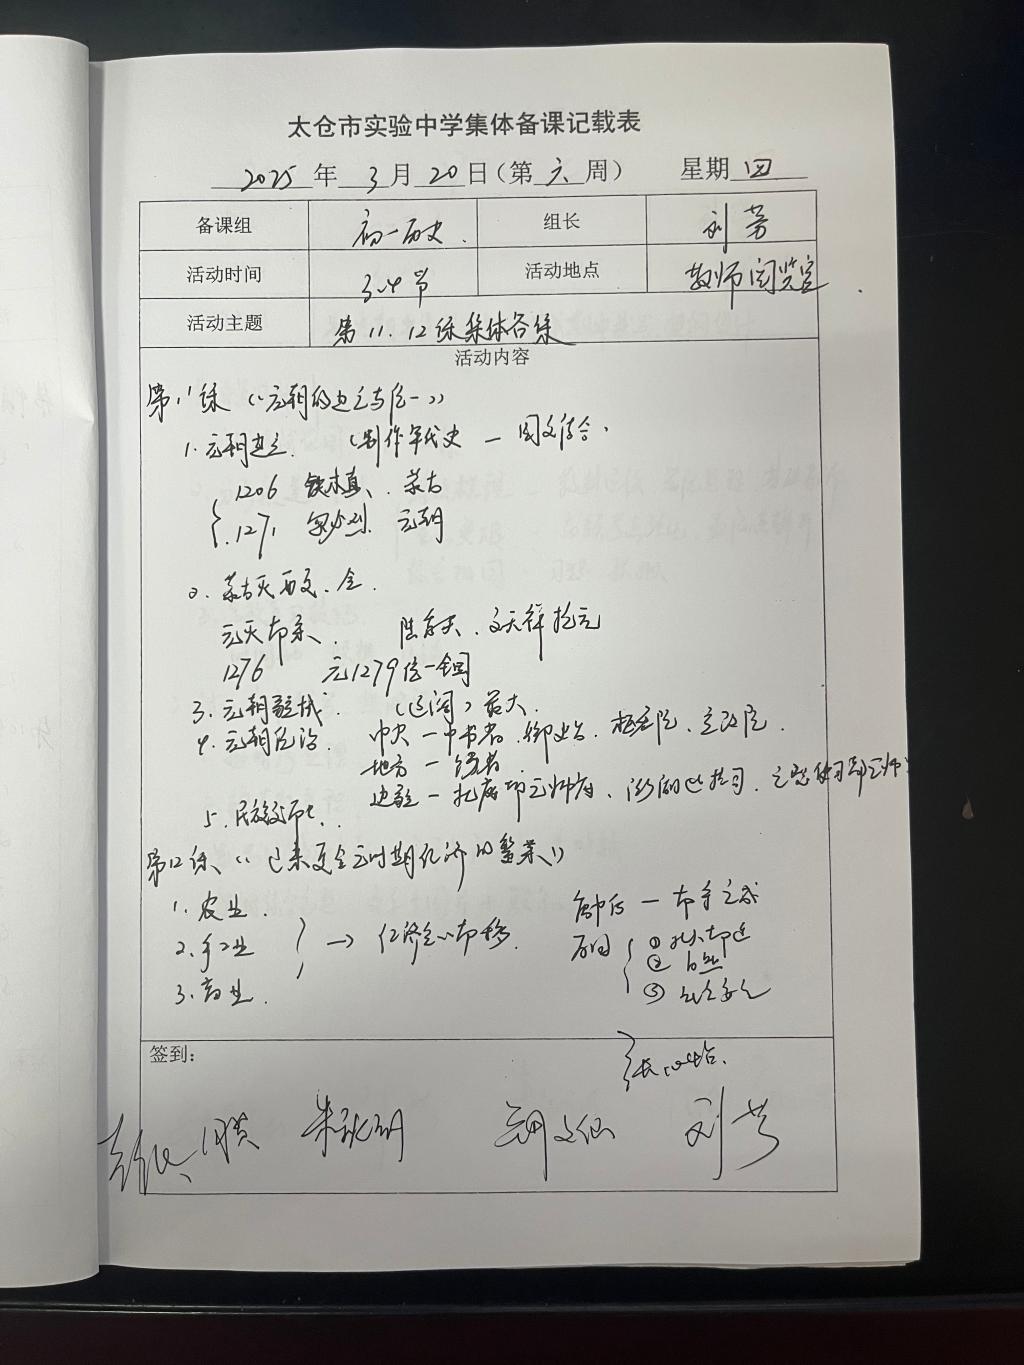 太仓市实验中学集体备课记载表
2025 年 3 月 20 日（第 六 周） 星期 四
备课组 初一历史. 组长 刘芳
活动时间 3.4节 活动地点 教师阅览室
活动主题 第11.12课集体备课
活动内容
第11课《元朝的建立与统一》
1.元朝建立. （制作年代史 — 图文结合.
1206 铁木真、蒙古
1271 忽必烈. 元朝
2. 蒙古灭西夏、金.
元灭南宋、 陆秀夫、文天祥抗元
1276 元1279统一全国
3. 元朝疆域. （辽阔）最大.
4. 元朝统治. 中央 — 中书省.御史台、枢密院、宣政院.
地方 — 行省
边疆 — 澎湖巡检司.
5. 民族交融.
第12课、《辽宋夏金元时期经济的繁荣》
1. 农业.
2. 手工业 → 经济重心南移.
3. 商业.
南宋
原因 ①
② 自然
③
签到：
朱 刘芳